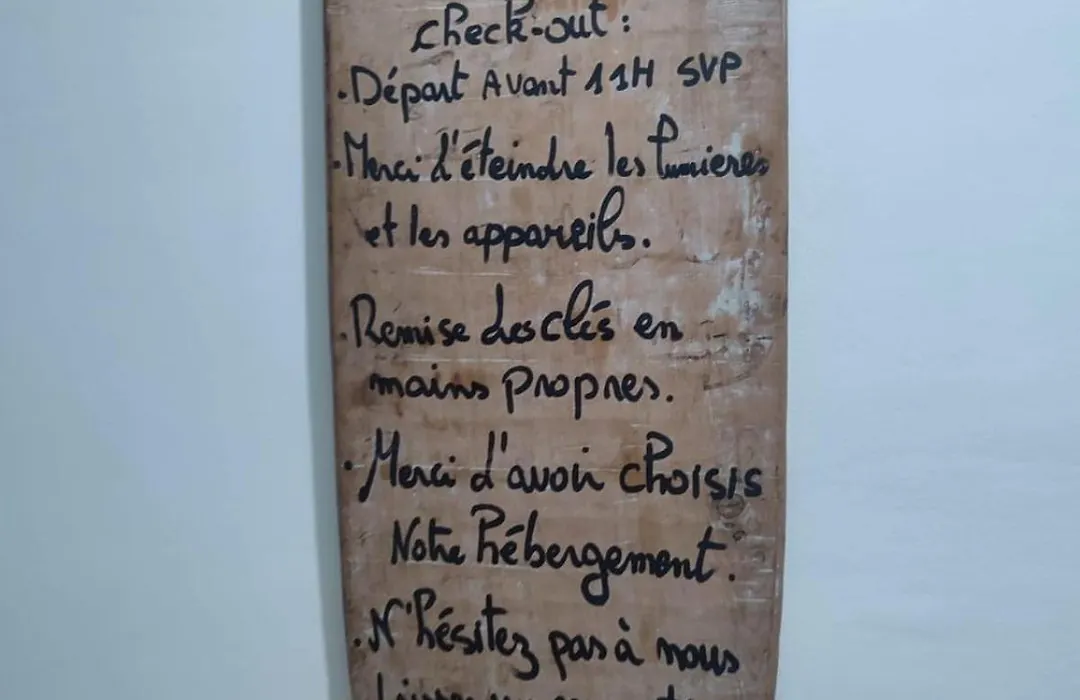 check-out :
. Départ Avant 11H SVP
. Merci d'éteindre les lumieres
et les appareils.
. Remise des clés en
mains propres.
. Merci d'avoir choisis
Notre hébergement.
. N'hésitez pas à nous